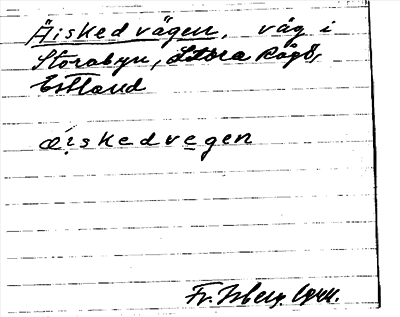 Äiskedvägen, väg i
Storabyn, Stora Rågö,
Estland
æiskedvegen
Fr. Isberg. 1944.